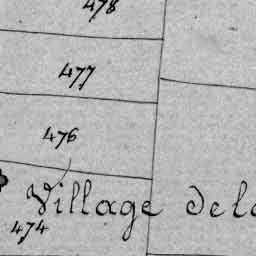 478
477
476
Village de la
474